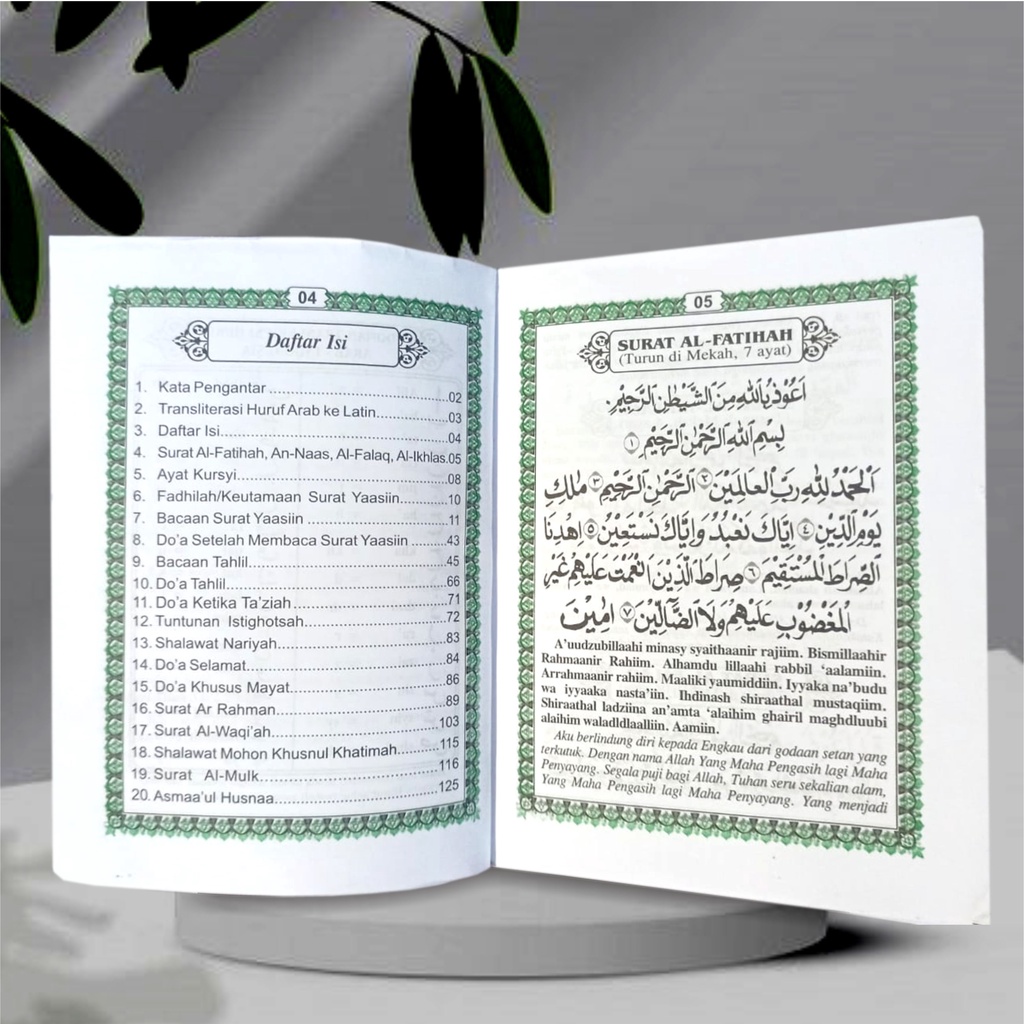 04
Daftar Isi
1. Kata Pengantar ........................................ 02
2. Transliterasi Huruf Arab ke Latin ................ 03
3. Daftar Isi ................................................ 04
4. Surat Al-Fatihah, An-Naas, Al-Falaq, Al-Ikhlas. 05
5. Ayat Kursyi ............................................. 08
6. Fadhilah/Keutamaan Surat Yaasiin ............. 10
7. Bacaan Surat Yaasiin ............................... 11
8. Do'a Setelah Membaca Surat Yaasiin ........ 43
9. Bacaan Tahlil .......................................... 45
10. Do'a Tahlil ............................................. 66
11. Do'a Ketika Ta'ziah ................................ 71
12. Tuntunan Istighotsah .............................. 72
13. Shalawat Nariyah ................................... 83
14. Do'a Selamat ......................................... 84
15. Do'a Khusus Mayat ................................ 86
16. Surat Ar Rahman ................................... 89
17. Surat Al-Waqi'ah .................................... 103
18. Shalawat Mohon Khusnul Khatimah ......... 115
19. Surat Al-Mulk ......................................... 116
20. Asmaa'ul Husnaa ................................... 125
05
SURAT AL-FATIHAH
(Turun di Mekah, 7 ayat)
اَعُوْذُ بِاللهِ مِنَ الشَّيْطٰنِ الرَّجِيْمِ.
بِسْمِ اللهِ الرَّحْمٰنِ الرَّحِيْمِ ﴿١﴾
اَلْحَمْدُ لِلّٰهِ رَبِّ الْعَالَمِيْنَ ﴿٢﴾ اَلرَّحْمٰنِ الرَّحِيْمِ ﴿٣﴾ مٰلِكِ
يَوْمِ الدِّيْنِ ﴿٤﴾ اِيَّاكَ نَعْبُدُ وَاِيَّاكَ نَسْتَعِيْنُ ﴿٥﴾ اِهْدِنَا
الصِّرَاطَ الْمُسْتَقِيْمَ ﴿٦﴾ صِرَاطَ الَّذِيْنَ اَنْعَمْتَ عَلَيْهِمْ غَيْرِ
الْمَغْضُوْبِ عَلَيْهِمْ وَلَا الضَّآلِّيْنَ ﴿٧﴾ اٰمِيْنَ
A'uudzubillaahi minasy syaithaanir rajiim. Bismillaahir
Rahmaanir Rahiim. Alhamdu lillaahi rabbil 'aalamiin.
Arrahmaanir rahiim. Maaliki yaumiddiin. Iyyaka na'budu
wa iyyaaka nasta'iin. Ihdinash shiraathal mustaqiim.
Shiraathal ladziina an'amta 'alaihim ghairil maghdluubi
alaihim waladldlaalliin. Aamiin.
Aku berlindung diri kepada Engkau dari godaan setan yang
terkutuk. Dengan nama Allah Yang Maha Pengasih lagi Maha
Penyayang. Segala puji bagi Allah, Tuhan seru sekalian alam,
Yang Maha Pengasih lagi Maha Penyayang. Yang menjadi